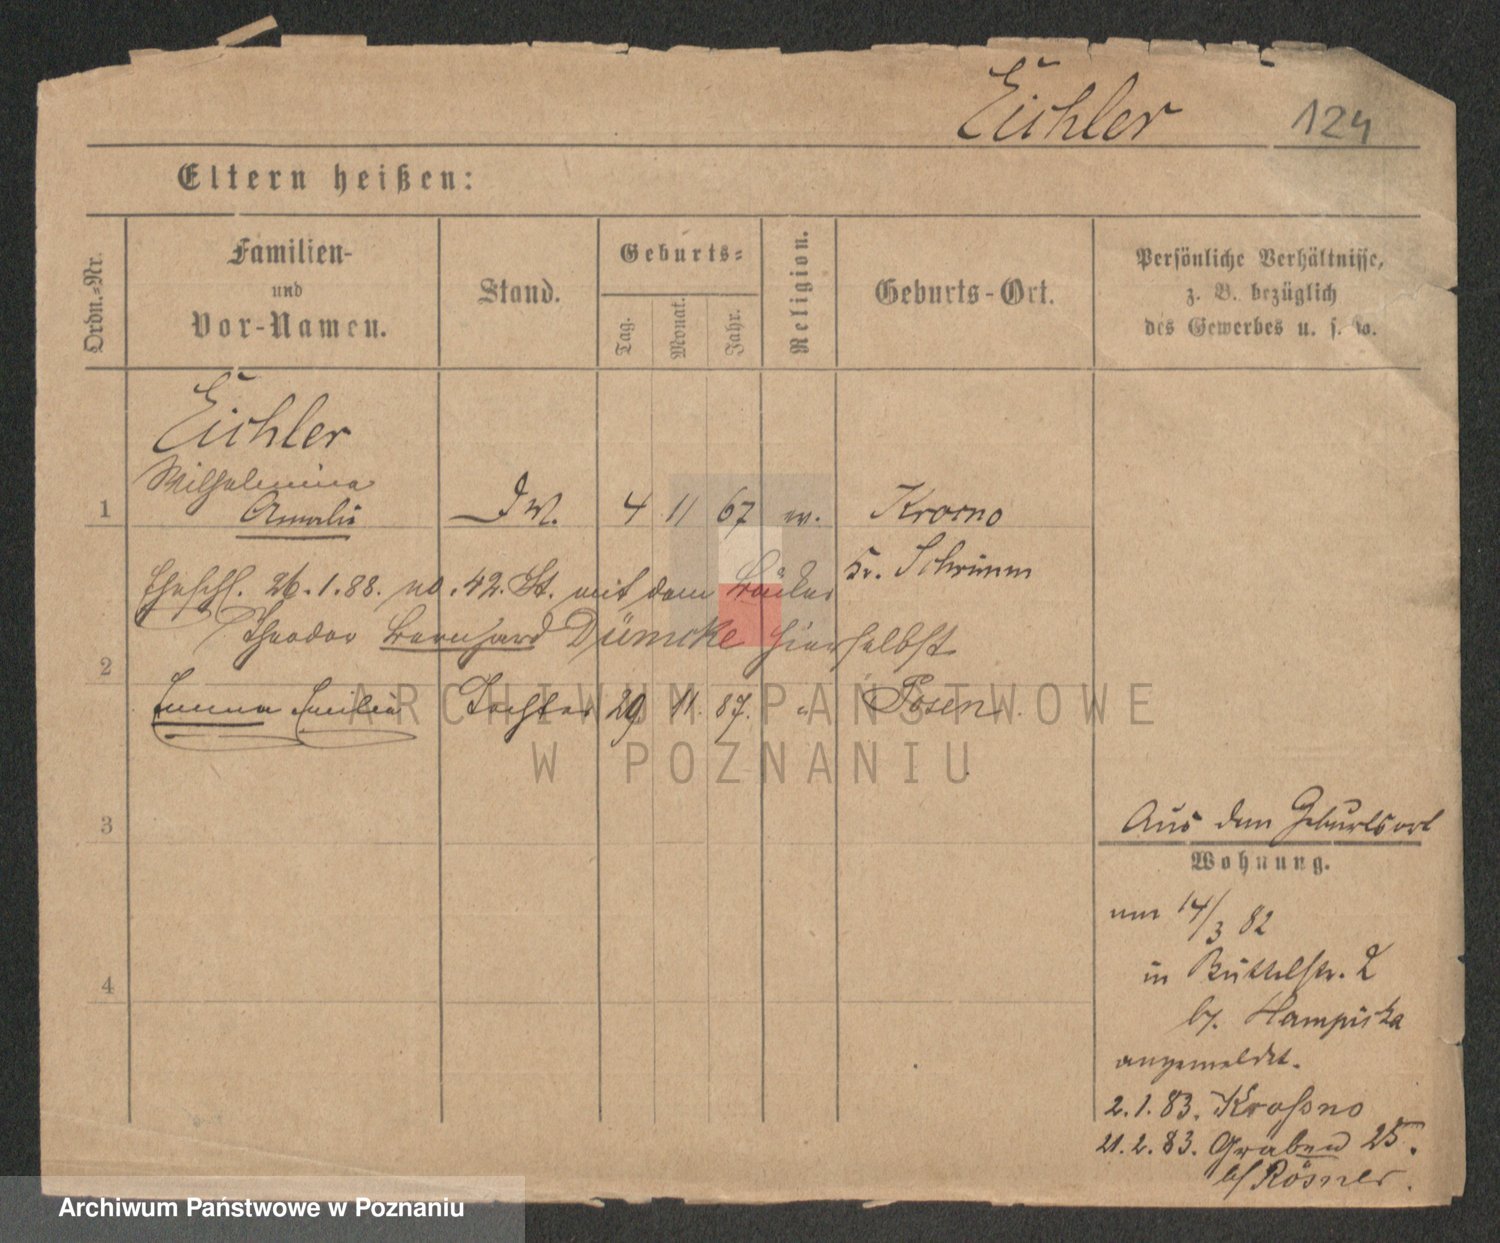 Eichler 124
Eltern heißen:
Ordn.-Nr.
Familien-
und
Vor-Namen.
Stand.
Geburts-
Tag.
Monat.
Jahr.
Religion.
Geburts-Ort.
Persönliche Verhältnisse,
z. B. bezüglich
des Gewerbes u. s. w.
Eichler
Wilhelmina
1 Amalie 4 11 67 Krosno
Kr. Schrimm
Eheschl. 26.1.88. no. 42. St. mit dem Bäcker
Theodor Bernhard Dümcke hierselbst
2
Emma Emilie Tochter 29 11. 87. " Posen
3
4
Aus dem Geburtsort
Wohnung.
um 14/3 82
in Büttelstr. 2
b. Hampiska
angemeldet.
2.1.83. Kroßno
21.2.83. Graben 25.
b/ Rösner.
ARCHIWUM PAŃSTWOWE
W POZNANIU
Archiwum Państwowe w Poznaniu